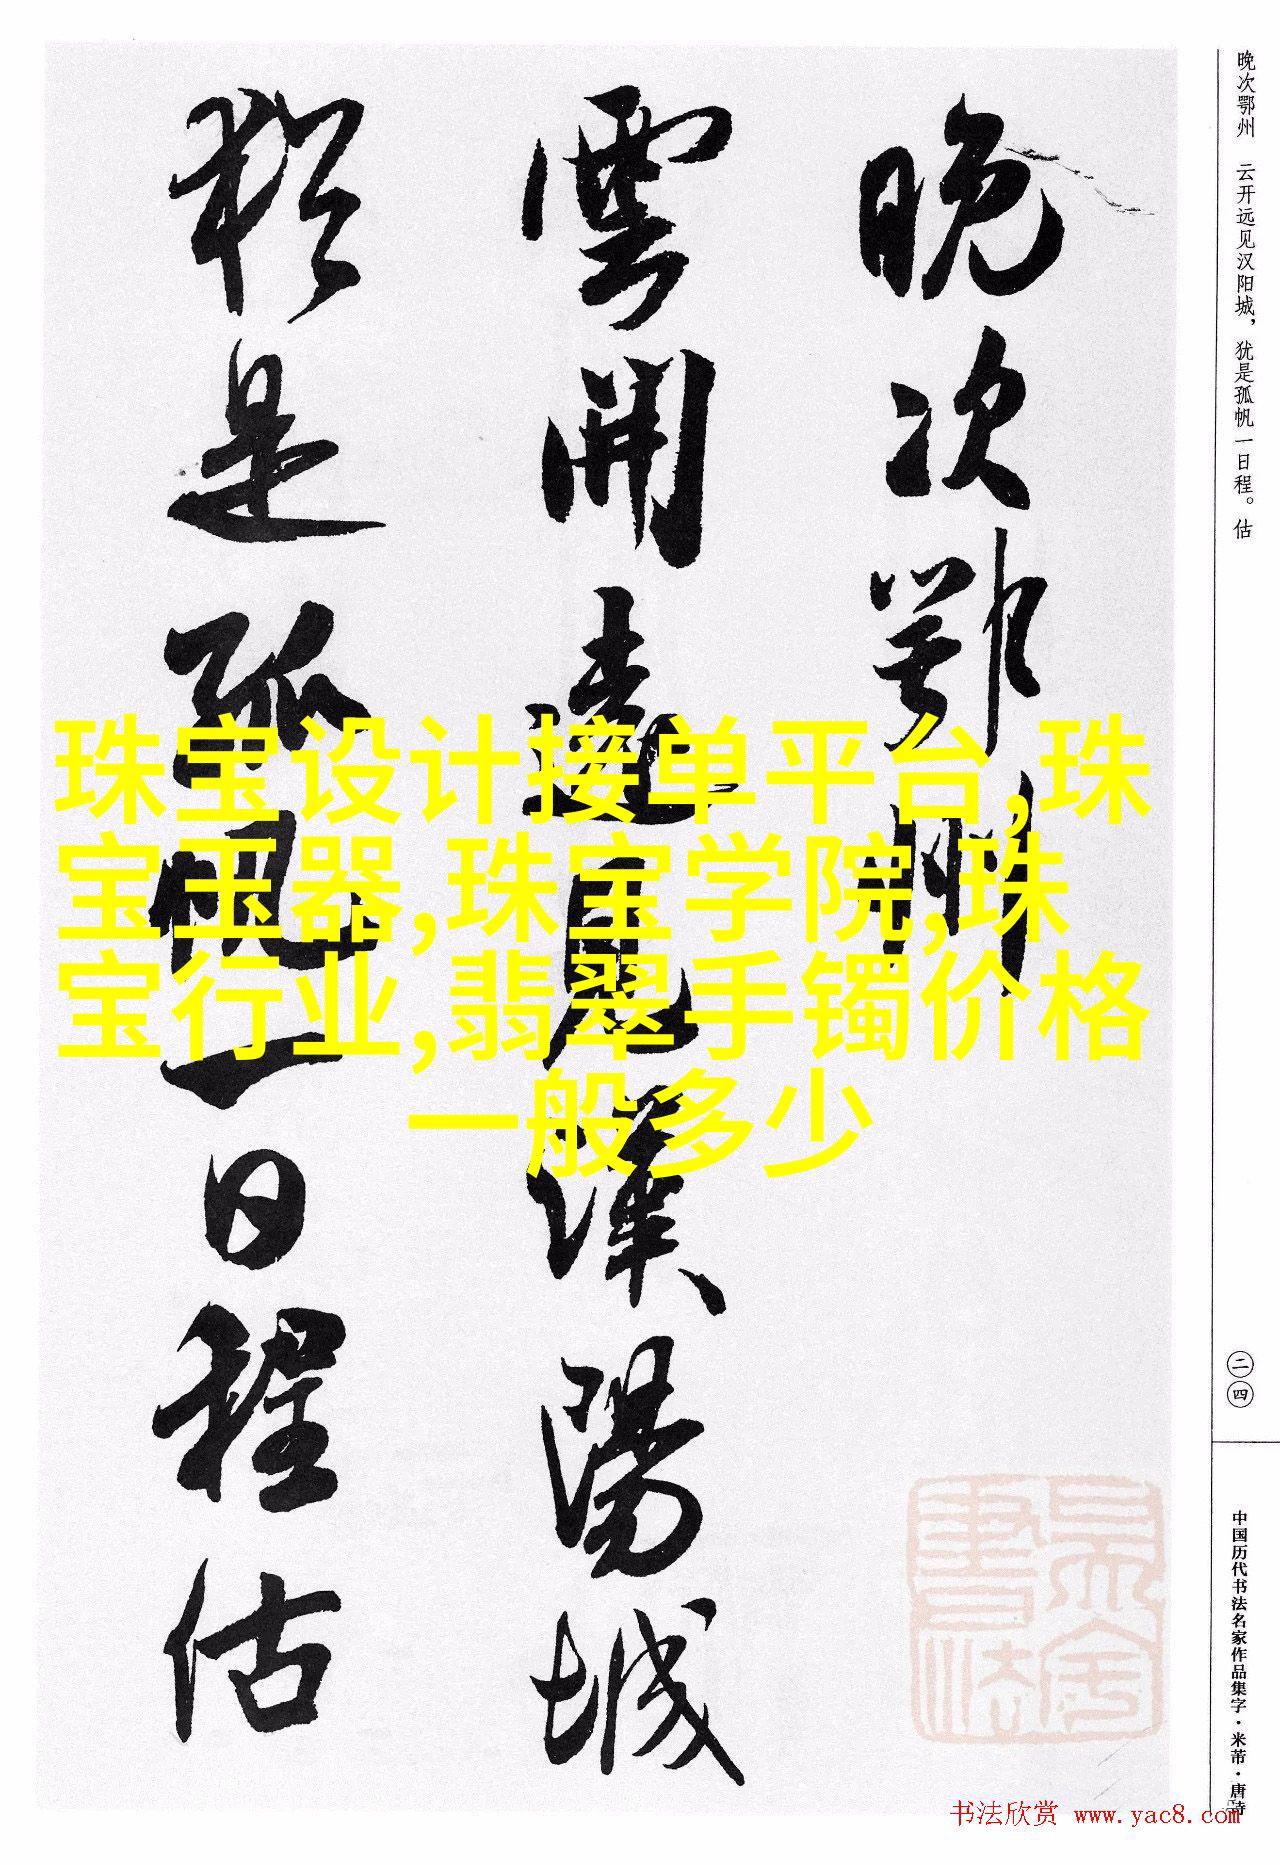 晚次鄂州　云开远见汉阳城，犹是孤帆一日程。估
晚次鄂州
雲開遠見漢陽城
猶是孤帆一日程估
珠宝设计接单平台,珠
宝玉器,珠宝学院,珠
宝行业,翡翠手镯价格
一般多少
二四
中国历代书法名家作品集字·米芾·唐诗
书法欣赏 www.yac8.com